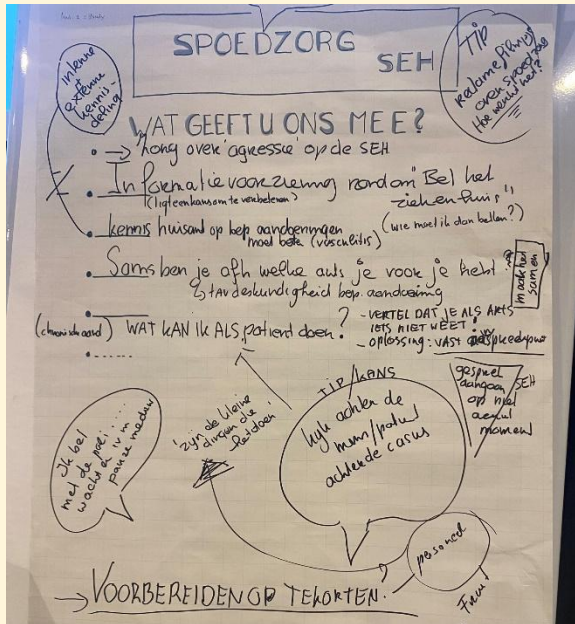 SPOEDZORG
SEH
interne
+
externe
kennis-
deling
TIP
reclame filmpje
over spoedzorg
Hoe werkt het?
WAT GEEFT U ONS MEE?
• → hong over 'agressie' op de SEH
• Informatievoorziening rondom "Bel het
ziekenhuis"
(ligt een kans om te verbeteren)
(wie moet ik dan bellen?)
• kennis huisarts op bep. aandoeningen
moet beter (vasculitis)
• Soms ben je afh welke arts je voor je hebt
& t.a.v deskundigheid bep. aandoening
maak het
samen
(chronisch aard)
• WAT KAN IK ALS patient doen?
- VERTEL DAT JE ALS ARTS
IETS NIET WEET!
- oplossing: VAST
• ......
gesprek
aangaan
op niet
acuut
moment
SEH
TIP/KANS
kijk achter de
mens/patient
achter de casus
'zijn de kleine
dingen die
het doen'
Ik bel
met de poli.....
wacht
pauze
personeel
→ VOORBEREIDEN OP TEKORTEN.